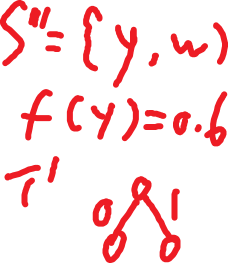 S'''={y,w)
f(y)=0.6
T'
0 1